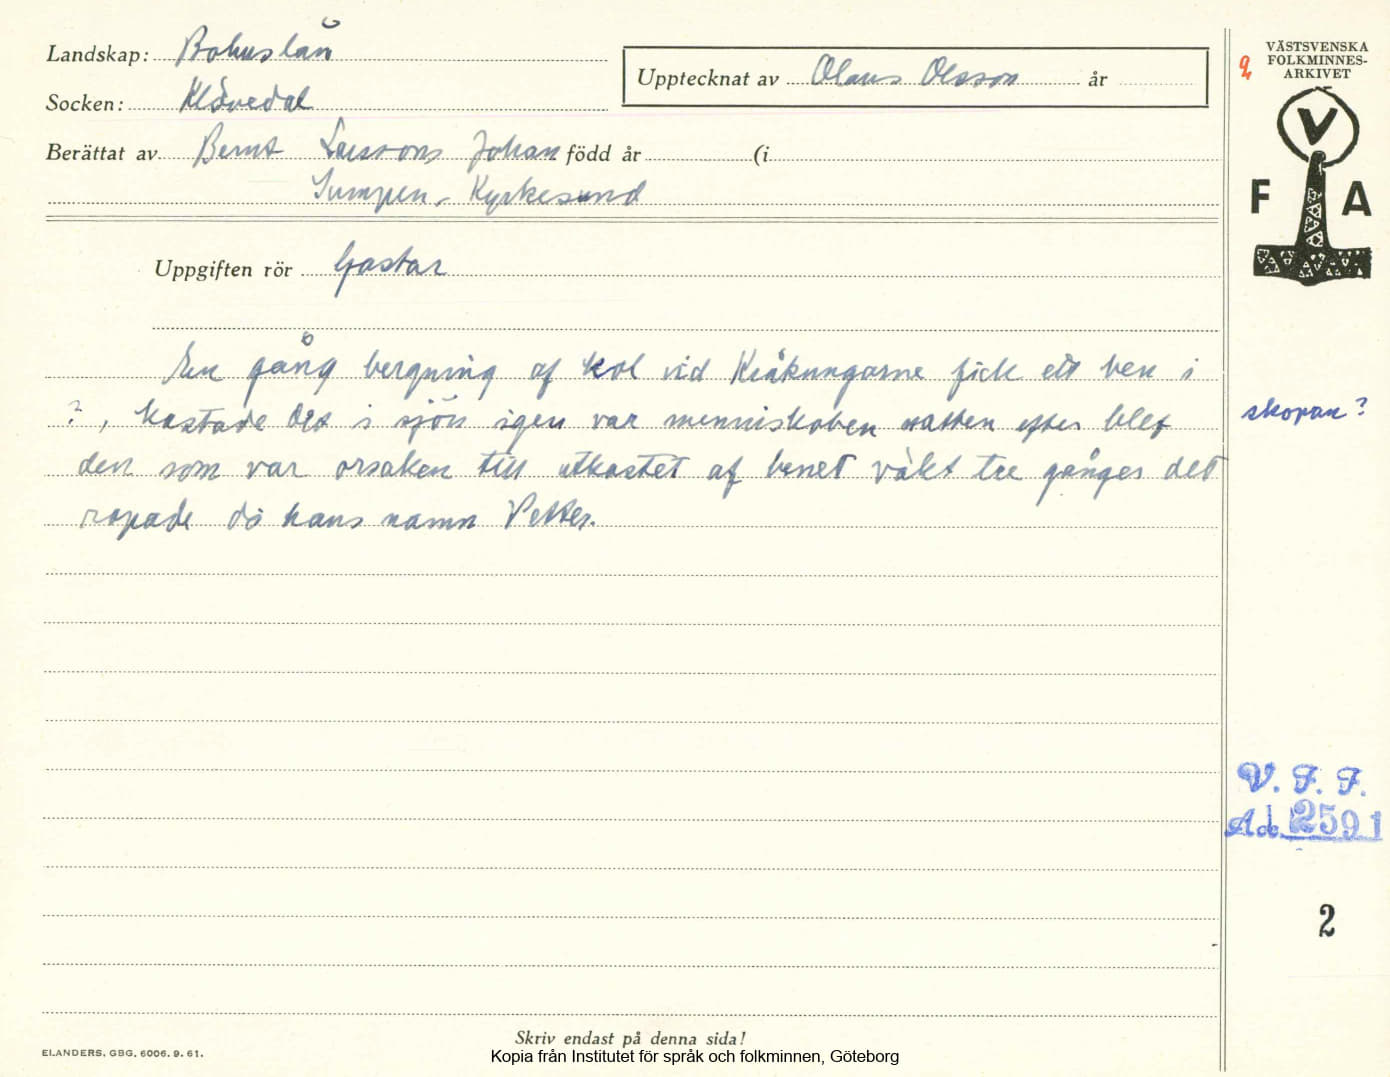 Landskap: Bohuslän
Upptecknat av Olaus Olsson år
Socken: Klövedal
Berättat av Bernt Larssons Johan född år (i
Sumpen, Kyrkesund
Uppgiften rör Gastar
En gång bergning af kol vid Kråkungarne fick ett ben i
?, kastade det i sjön igen var menniskoben natten efter blef
den som var orsaken till utkastet af benet väkt tre gånger det
ropade då hans namn Petter.
Skriv endast på denna sida!
ELANDERS, GBG, 6006. 9. 61.
Kopia från Institutet för språk och folkminnen, Göteborg
VÄSTSVENSKA
FOLKMINNES-
ARKIVET
V
F A
skopan?
V. F. F.
Acc. 2591
2